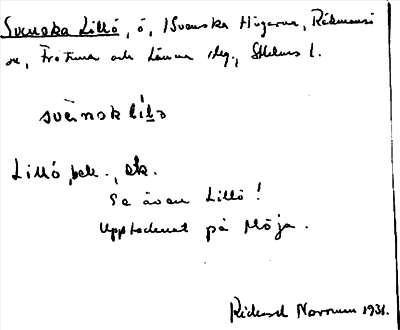 Svenska Lillö, ö, i Svenska Högarna, Rådmansö
sn, Frötuna och Länna skg., Sthlms l.
svènsk lílö
Lillö, bek., ek.
Se även Lillö!
Upptecknat på Möja.
Rickard Norrman 1931.